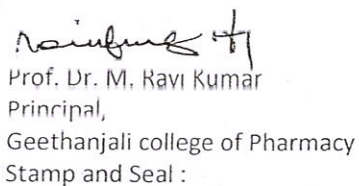 Prof. Dr. M. Ravi Kumar
Principal,
Geethanjali college of Pharmacy
Stamp and Seal :